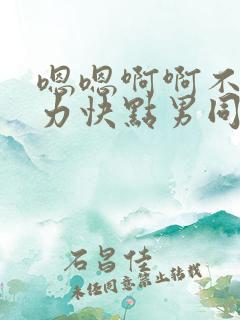 嗯嗯啊啊不
力快點男同
石昌佳
未经同意禁止转载